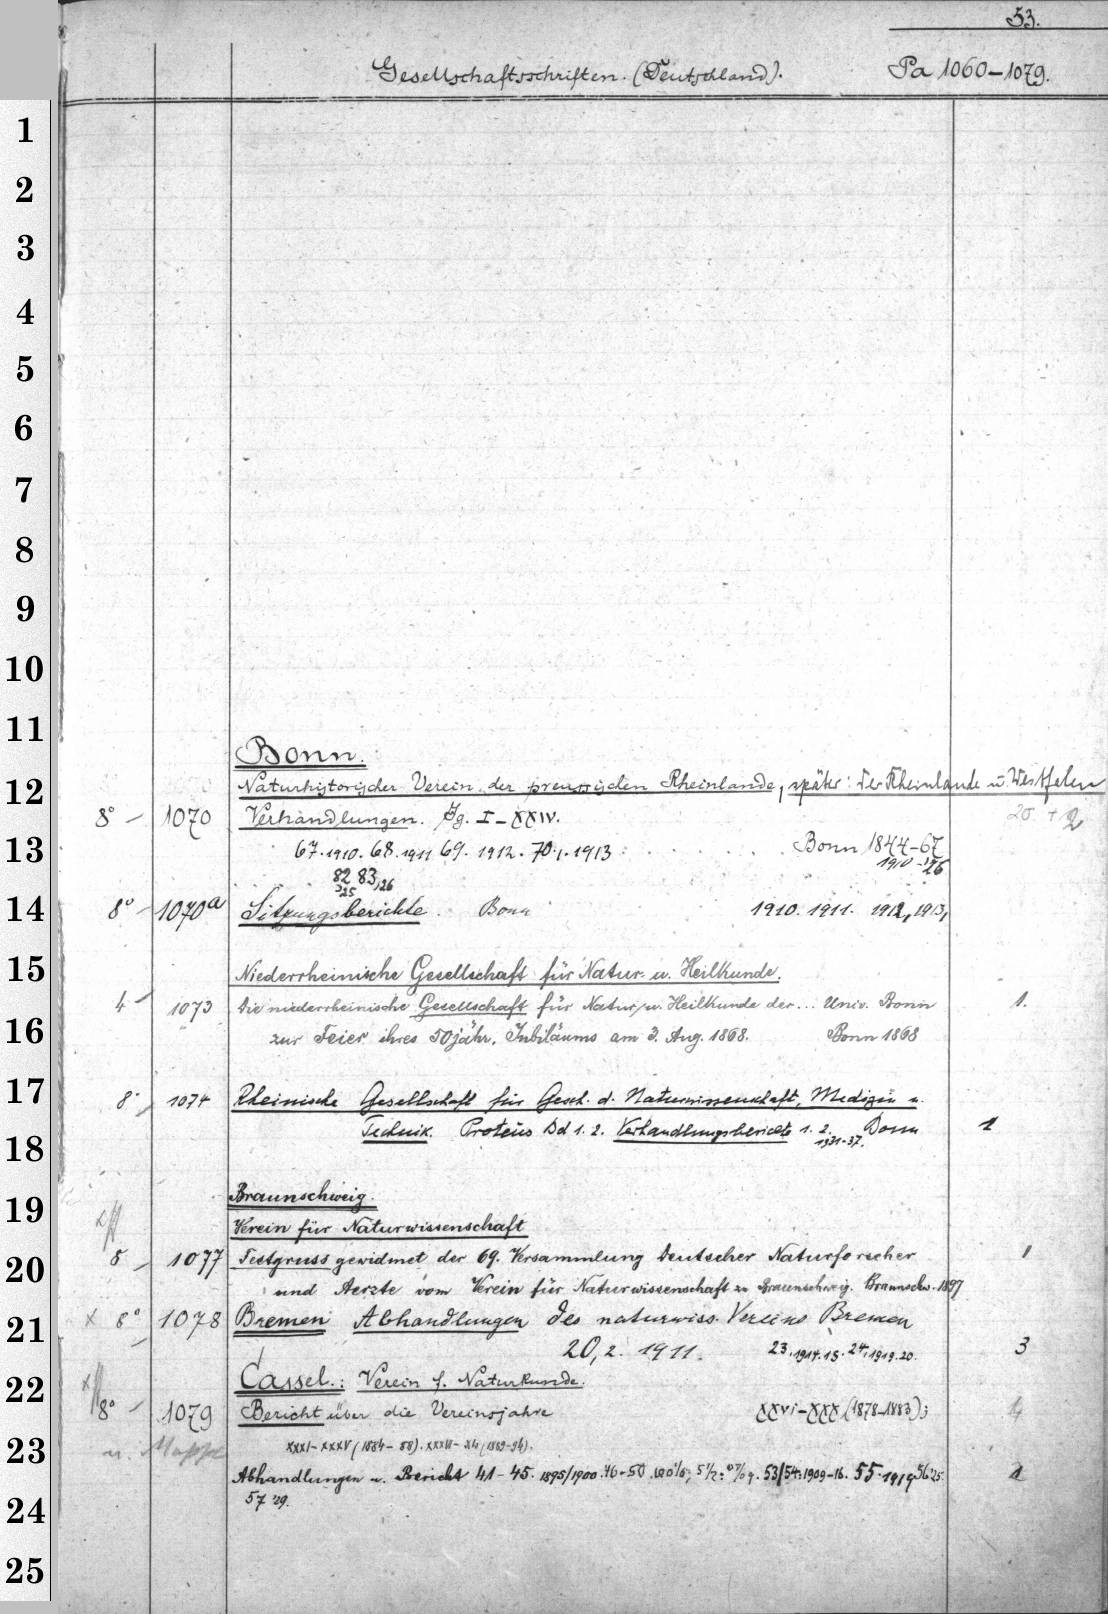 53.
Gesellschaftsschriften. (Deutschland). Pa 1060-1079.
1
2
3
4
5
6
7
8
9
10
11
Bonn.
12 Naturhistorischer Verein der preussischen Rheinlande, später: der Rheinlande u. Westfalen
8° - 1070 Verhandlungen. Jg. I-XXIV. 20. + 2
13 67. 1910. 68. 1911 69. 1912. 70. 1. 1913 Bonn 1844-67
82 83, 1910-'26
'25 '26
14 8° - 1070a Sitzungsberichte. Bonn 1910. 1911. 1912, 1913,
15 Niederrheinische Gesellschaft für Natur- u. Heilkunde.
4 - 1073 Die niederrheinische Gesellschaft für Natur- u. Heilkunde der... Univ. Bonn 1.
16 zur Feier ihres 50jähr. Jubiläums am 3. Aug. 1868. Bonn 1868
17 8° - 1074 Rheinische Gesellschaft für Gesch. d. Naturwissenschaft, Medizin u.
18 Technik. Proteus Bd 1. 2. Verhandlungsberichte 1. 2. Bonn 1
1931-37.
19 Braunschweig.
Verein für Naturwissenschaft
20 8 - 1077 Festgruss gewidmet der 69. Versammlung Deutscher Naturforscher 1
und Aerzte vom Verein für Naturwissenschaft zu Braunschweig. Braunschw. 1897
21 x 8° 1078 Bremen Abhandlungen des naturwiss. Vereins Bremen
20, 2. 1911. 23. 1914. 15. 24. 1919. 20. 3
22 Cassel.: Verein f. Naturkunde.
8° - 1079 Bericht über die Vereinsjahre XXVI-XXX (1878-1883); 4
23 u. Mappe XXXI-XXXV (1884-88). XXXVI- (1889-94).
Abhandlungen u. Bericht 41-45. 1895/1900. 46-50. 53/54: 1909-16. 55. 1919 56 '25. 1
24 57 '29.
25